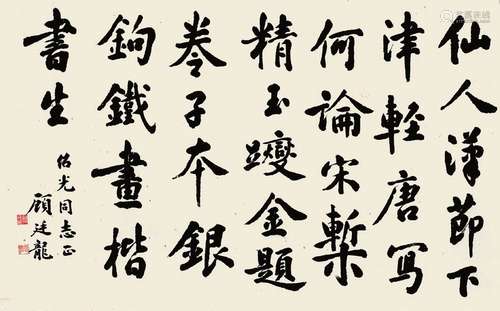 仙人漢節下
津輕唐写
何論宋槧
精玉躞金題
卷子本銀
鉤鐵畫楷
書生
光同志正
顧廷龍